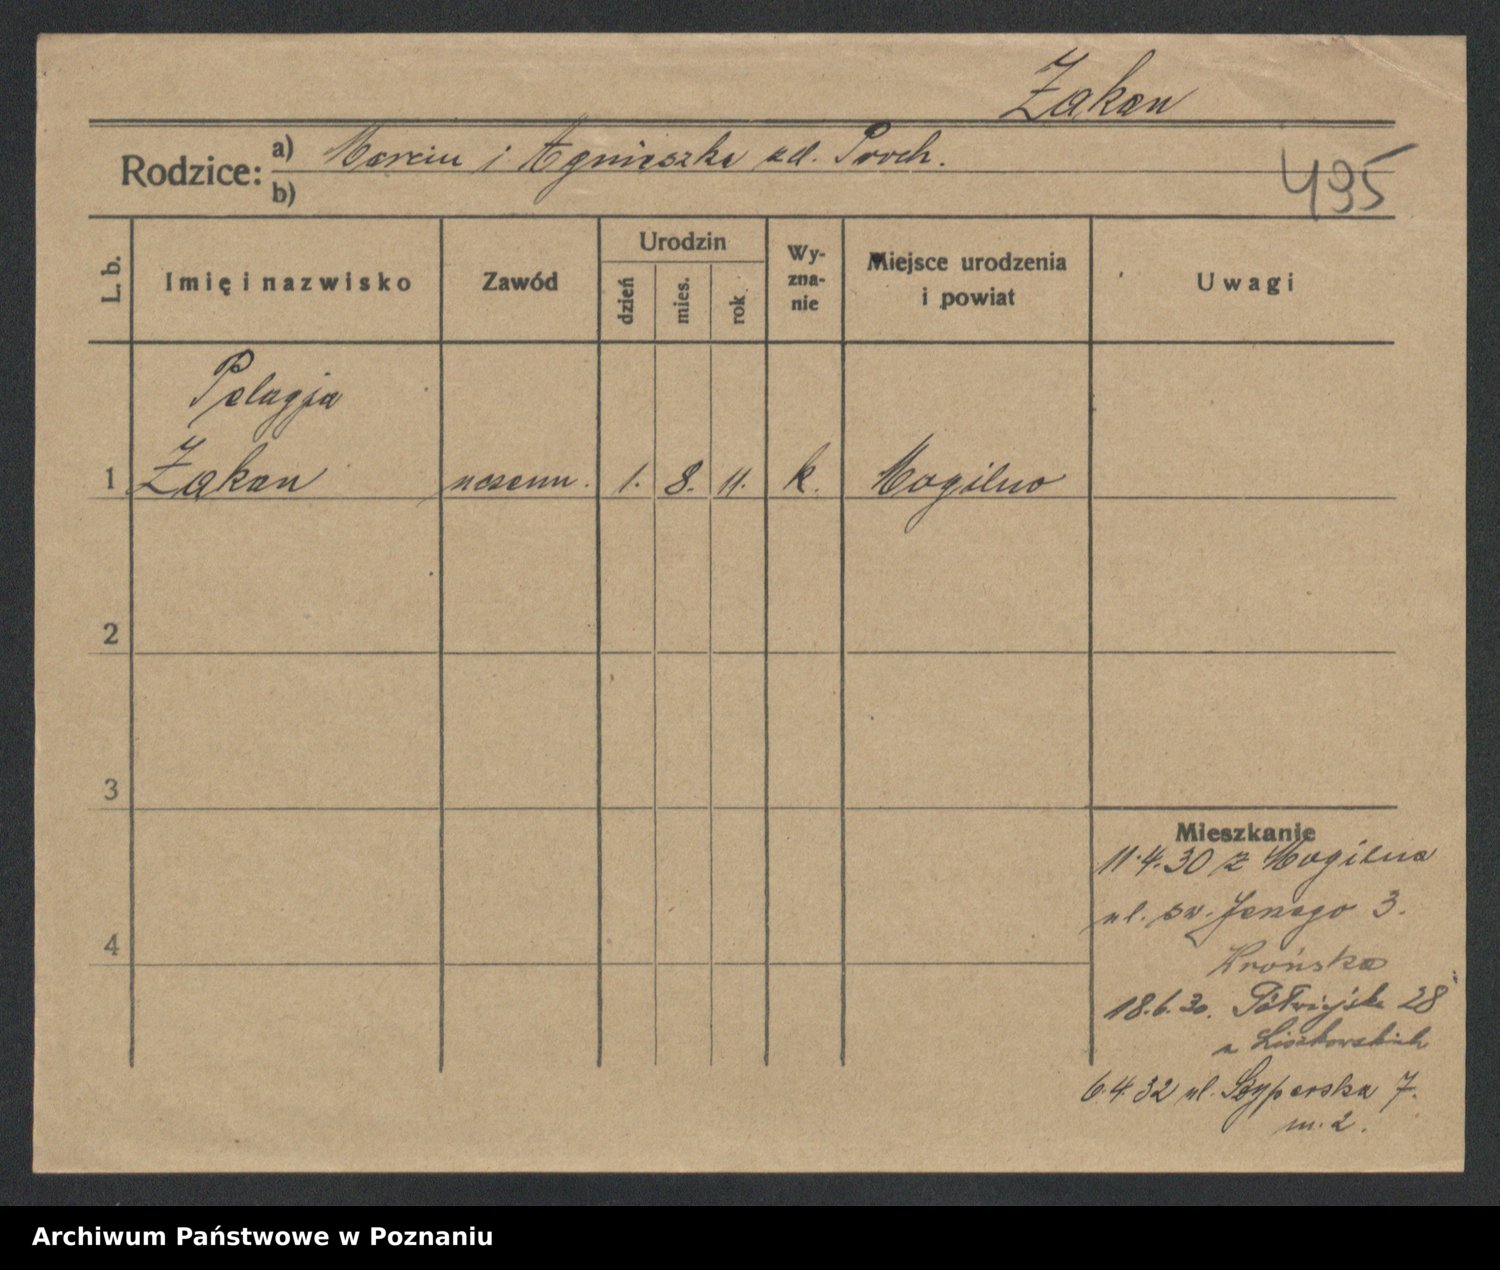 Żakan
Rodzice: a) Marcin i Agnieszka zd. Proch.
b)
495
L. b.
Imię i nazwisko
Zawód
Urodzin
dzień
mies.
rok
Wy-
zna-
nie
Miejsce urodzenia
i powiat
Uwagi
Pelagja
1 Żakan 1. 8. 11. k. Mogilno
2
3
4
Mieszkanie
11.4.30 z Mogilna
ul. św. Jana 3.
Krońska
18.6.30. Półwiejska 28
u Liszkowskich
6.4.32 ul. Szyperska 7.
m. 2.
Archiwum Państwowe w Poznaniu